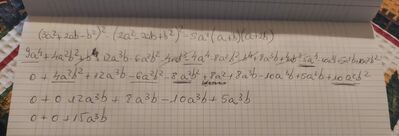 (3a²+2ab-b²)² - (2a²-2ab+b²)² - 5a²(a+b)(a+2b)
9a⁴+4a²b²+b⁴+12a³b-6a²b²-4ab³-4a⁴-8a²b²
0+4a²b²+12a³b-6a²b²-8a²b²+8a²+8a³b-10a²b+5a³b+10a²b²
0+0+12a³b+8a³b-10a³b+5a³b
0+0+15a³b